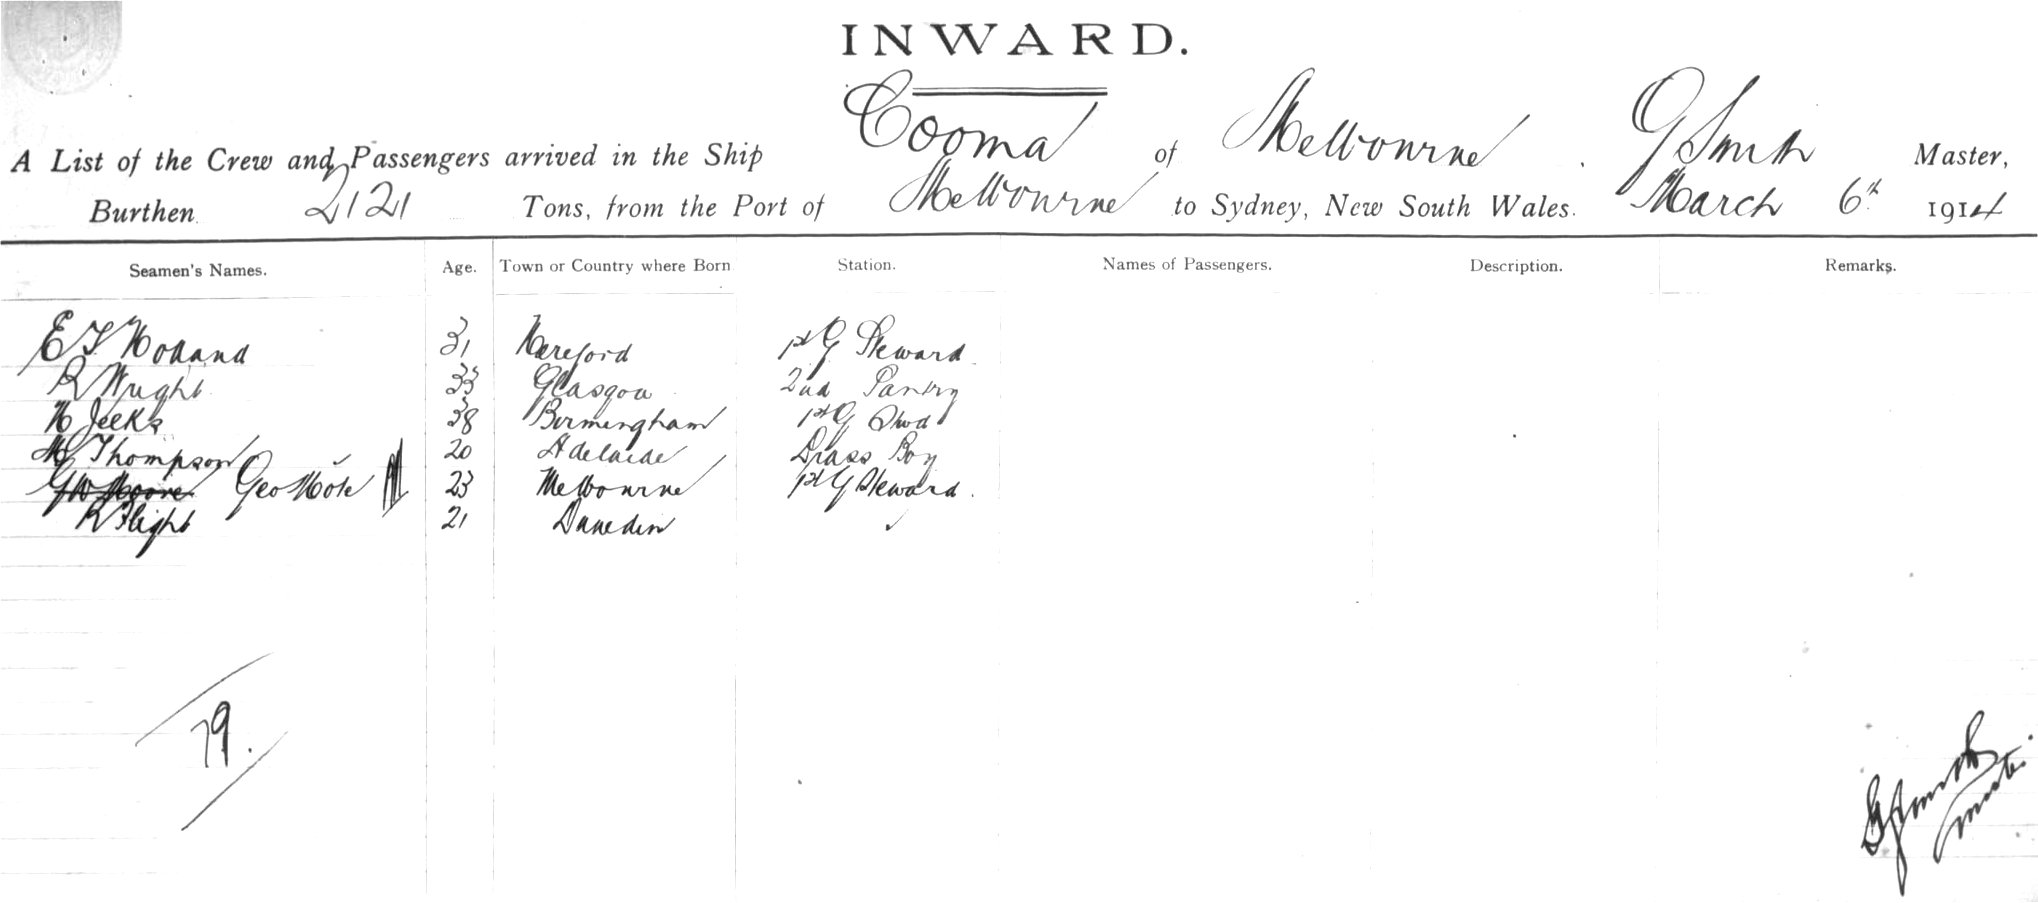 INWARD.
A List of the Crew and Passengers arrived in the Ship Cooma of Melbourne. G Smith Master,
Burthen 2121 Tons, from the Port of Melbourne to Sydney, New South Wales. March 6th 1914
Seamen's Names. Age. Town or Country where Born Station. Names of Passengers. Description. Remarks.
E T 31 Hereford 1st G Steward
R Wright 33 Glasgow 2nd Pantry
H Jeeks 38 Birmingham 1st G Stwd
Thompson 20 Adelaide Brass Boy
G W Moore Geo Mole 23 Melbourne 1st G Steward.
R Flight 21 Dunedin
79.
G Smith